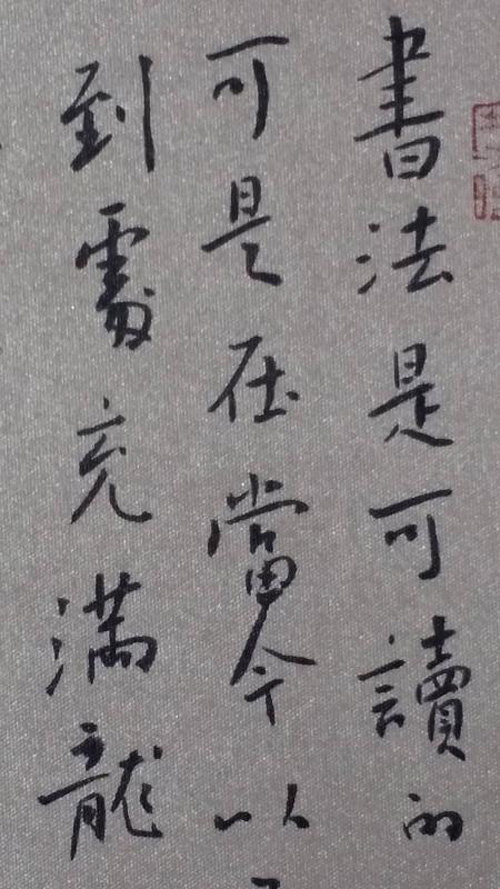 書法是可讀的
可是在當今以
到處充滿龍